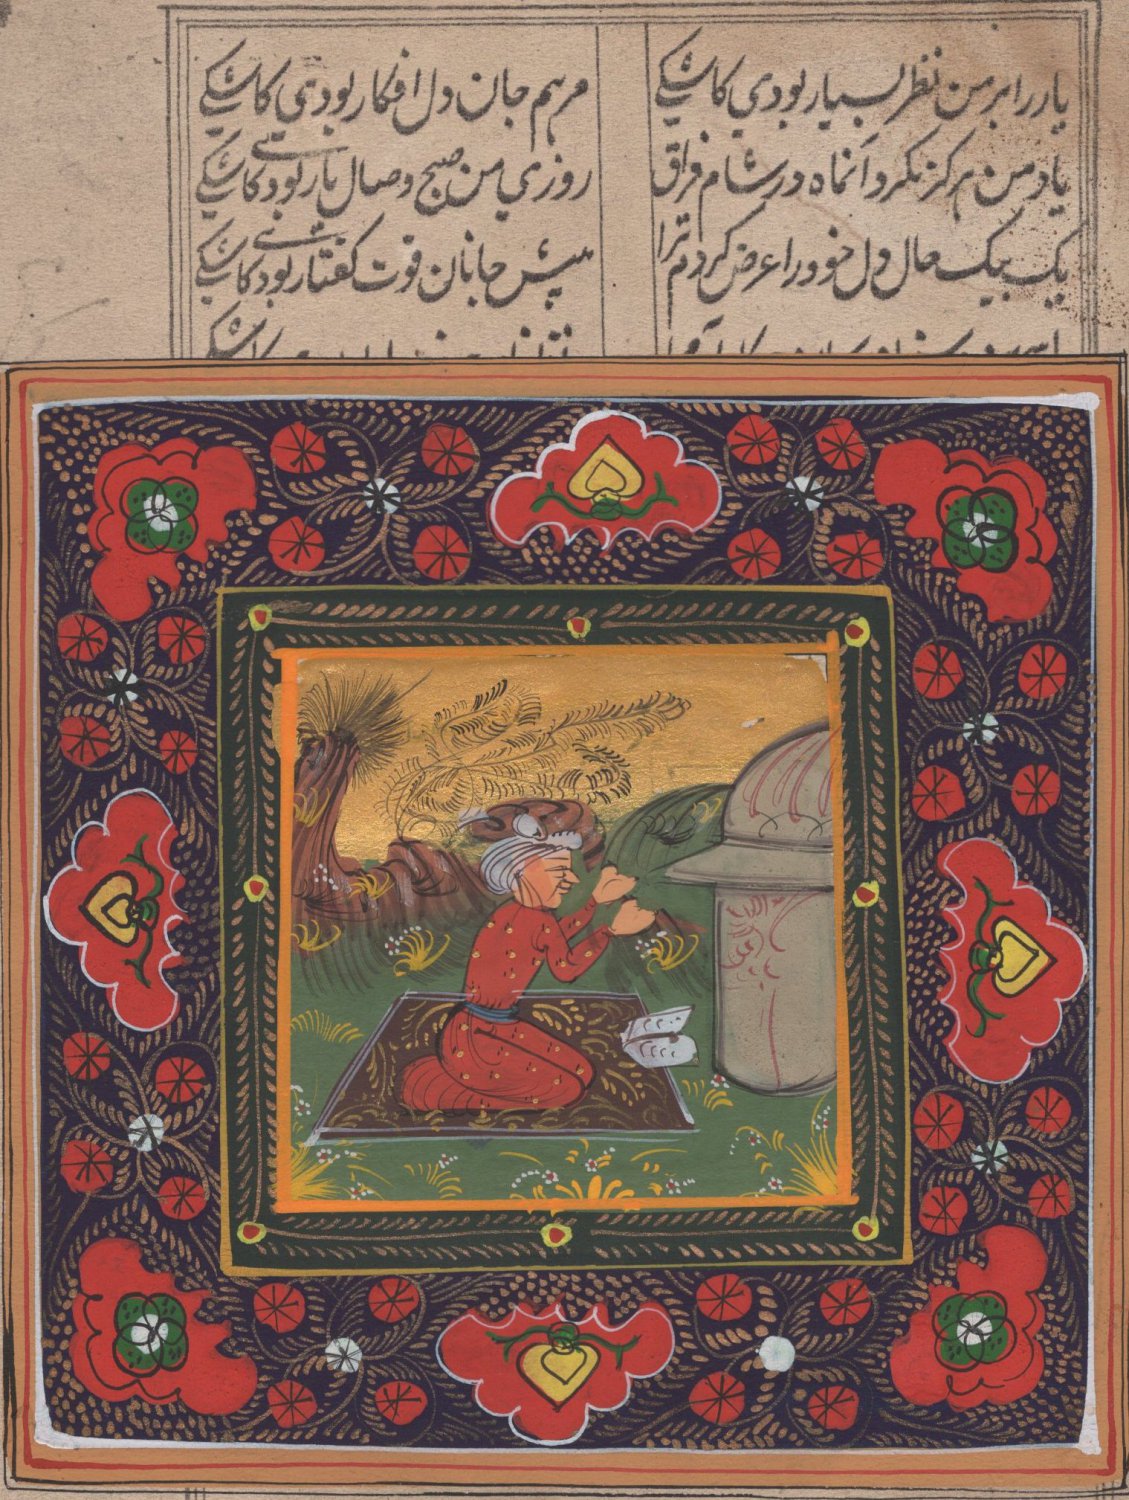 یار را بر من نظر بسیار بودی کاشکی
مرهم جان دل افکار بودی کاشکی
یاد من هرکز نکرد آنماه در شام فراق
روزی من صبح وصال یار بودی کاشکی
یک بیک حال دل خود را عرض کردم ترا
پیش جانان قوت کفتار بودی کاشکی